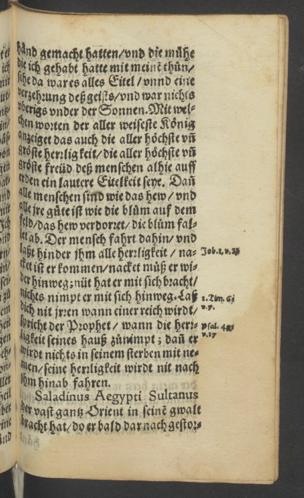 händ gemacht hatten/vnd die mühe
die ich gehabt hatte mit meinē thün/
sihe da war es alles Eitel/vnnd eine
verzehrung deß geists/vnd war nichts
überigs vnder der Sonnen. Mit wel-
chen worten der aller weiseste König
anzeiget das auch die aller höchste vñ
gröste herrligkeit/die aller höchste vñ
gröste freüd deß menschen alhie auff
erden ein lautere Eitelkeit seye. Dañ
alle menschen sind wie das hew/vnd
alle jre güte ist wie die blům auf dem
feld/das hew verdorret/die blům fal-
let ab. Der mensch fahrt dahin/vnd
laßt hinder jhm alle herrligkeit/na-
cket ist er kommen/nacket müß er wi-
der hinweg: nüt hat er mit sich bracht/
nichts nimpt er mit sich hinweg. Laß
dich nit jrren wann einer reich wirdt/
spricht der Prophet/wann die herr-
ligkeit seines hauß zůnimpt; dañ er
wirdt nichts in seinem sterben mit ne-
men/seine herrligkeit wirdt nit nach
jhm hinab fahren.
Saladinus Aegypti Sultanus
der vast gantz Orient in seinē gwalt
bracht hat/do er bald darnach gestor-
Job. 1. v. 21
1. Tim. 6.
v. 7.
Psal. 49.
v. 17